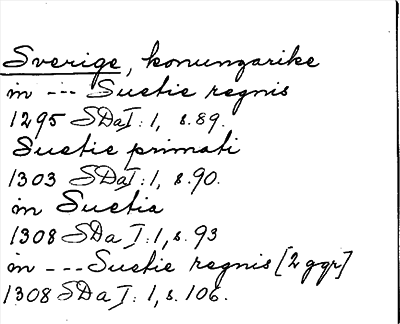 Sverige, konungarike
in --- Suetie regnis
1295 SDaI: 1, s. 89.
Suetie primati
1303 SDaI: 1, s. 90.
in Suetia
1308 SDa I: 1, s. 93
in --- Suetie regnis [2 ggr]
1308 SDa I: 1, s. 106.